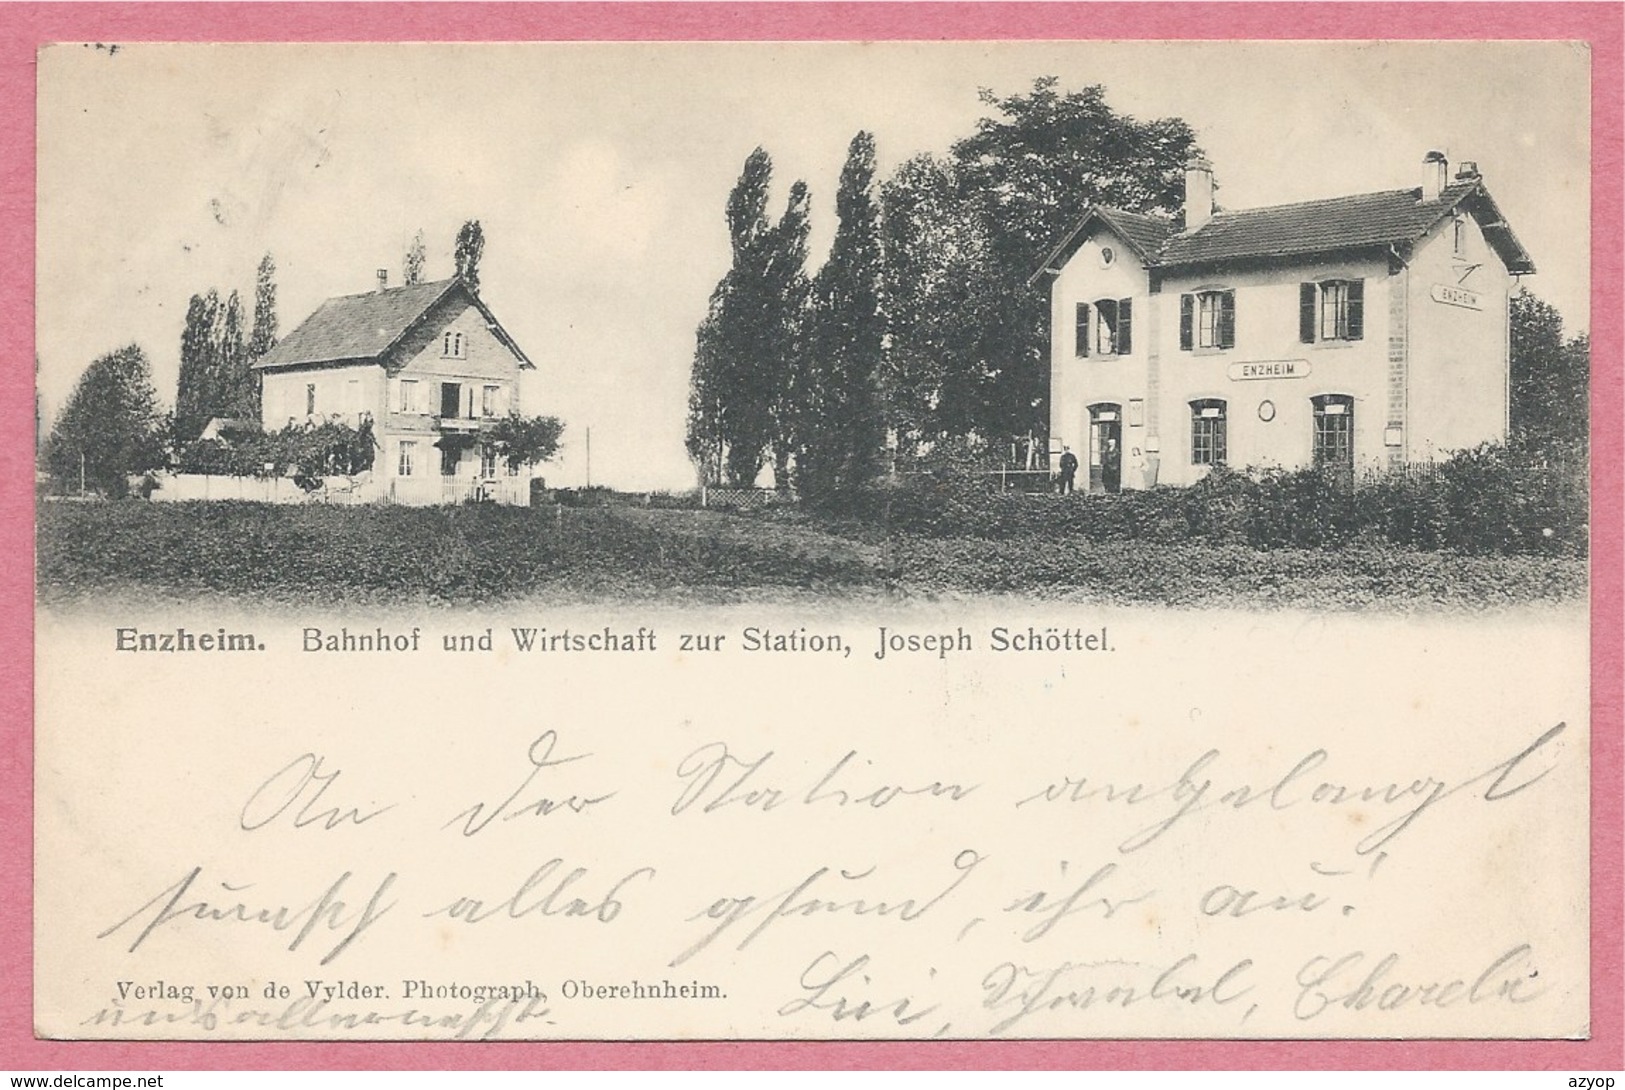 ENZHEIM
ENZHEIM
Enzheim. Bahnhof und Wirtschaft zur Station, Joseph Schöttel.
An der Station angelangt
alles gsund, ihr au!
Verlag von de Vylder. Photograph, Oberehnheim.
delcampe.net
azyop